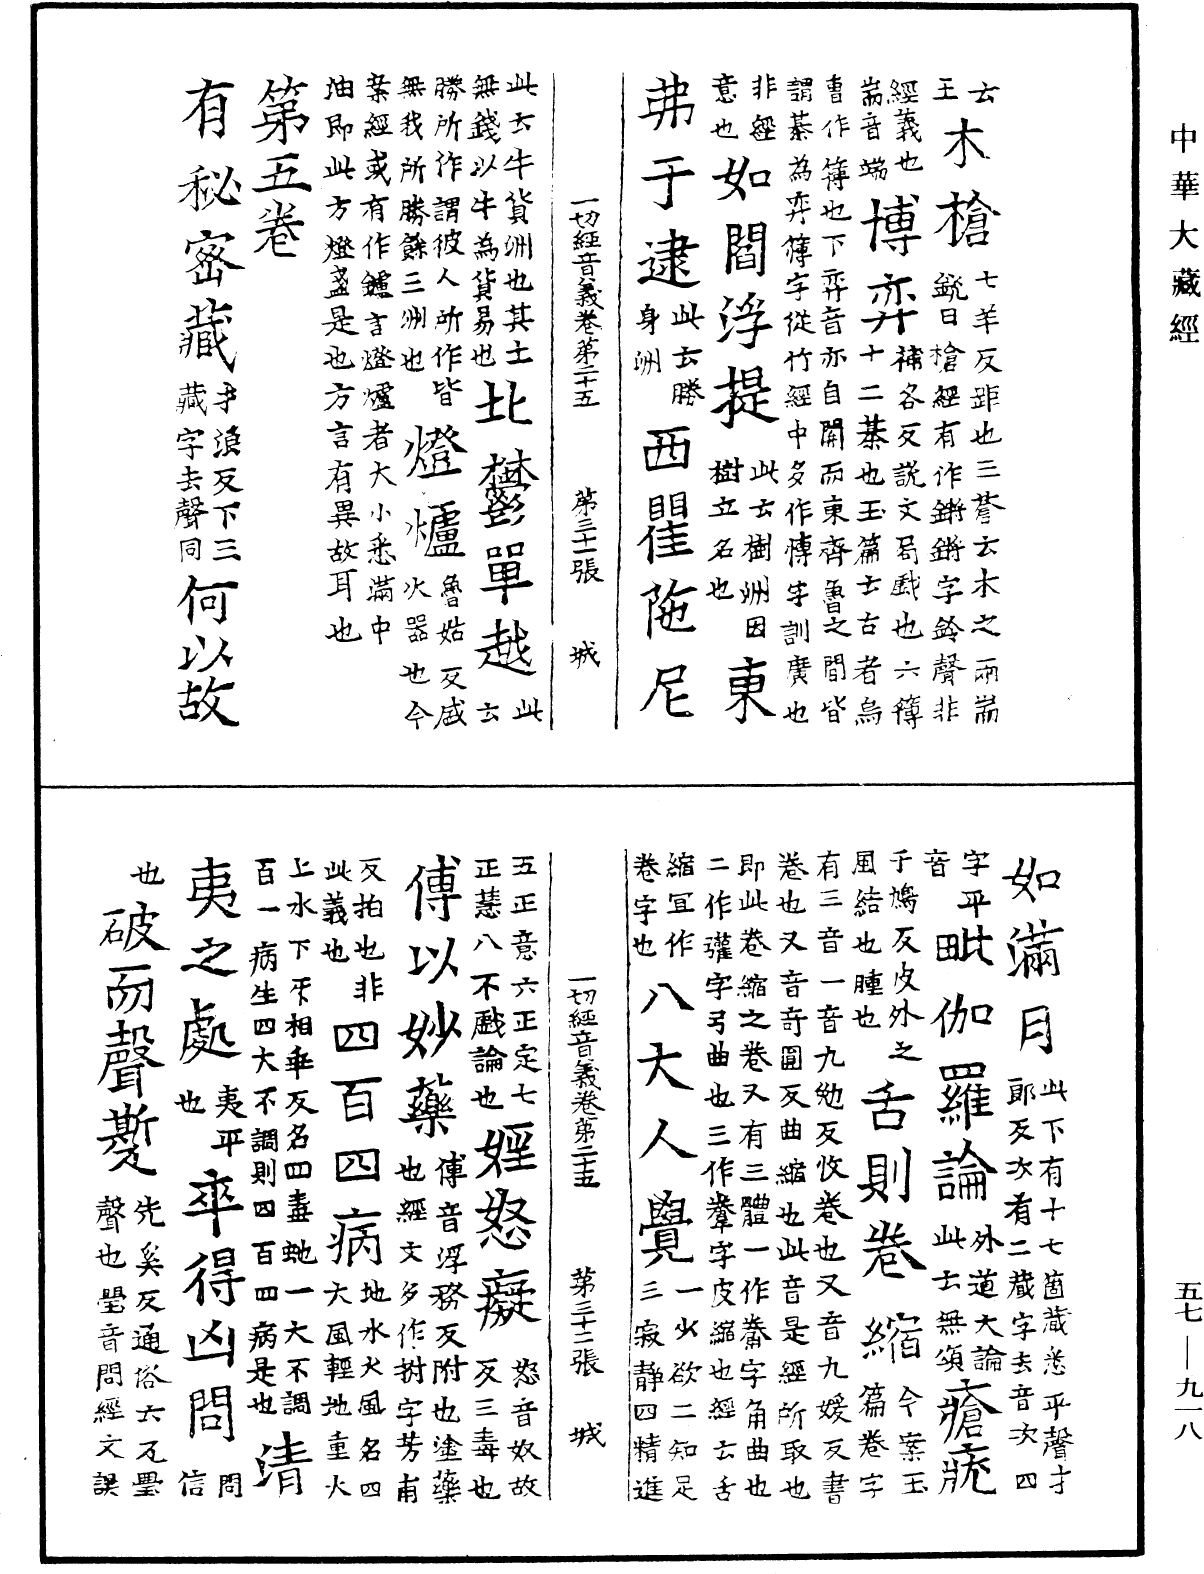 中華大藏經
云木之兩耑
王木槍七羊反䟽也三蒼云木之兩耑
銳曰槍經有作鏘鏘字鈴聲非
經義也博弈補各反說文局戲也六簙
耑音端十二棊也玉篇云古者烏
曹作簙也下弈音亦自關而東齊魯之間皆
謂棊為弈簙字從竹經中多作博字訓廣也
非經意也如閻浮提此云樹洲因樹立名也東
弗于逮此云勝身洲西瞿陁尼
一切經音義卷第二十五 第三十一張 城
此云牛貨洲也其土無錢以牛為貨易也北欝單越此云
勝所作謂彼人所作皆無我所勝餘三洲也燈爐魯姑反盛火器也今
案經或有作鑪言燈爐者大小悉滿中
油即此方燈盞是也方言有異故耳也
第五卷
有祕密藏才浪反下三藏字去聲同何以故
如滿月此下有十七箇藏悉平聲才郎反次有二藏字去音次四
字平音毗伽羅論外道大論此云無頌瘡疣
于鳩反皮外之風結也腫也舌則卷縮今案玉篇卷字
有三音一音九勉反收卷也又音九媛反書
卷也又音奇圓反曲縮也此音是經所取也
即此卷縮之卷又有三體一作觠字角曲也
二作㢧字弓曲也三作䊎字皮縮也經云舌
縮宜作卷字也八大人覺一少欲二知足三寂靜四精進
一切經音義卷第二十五 第三十二張 城
五正意六正定七正慧八不戲論也婬怒癡怒音奴故反三毒也
傅以妙藥傅音浮務反附也塗藥也經文多作拊字芳甫
反拍也非此義也四百四病地水火風名四大風輕地重火
上水下牙相乖反名四毒虵一大不調
百一病生四大不調則四百四病是也清
夷之處夷平也卒得凶問問信
也破而聲㽄先奚反通俗文瓦㽄聲也舋音問經文誤
五七—九一八